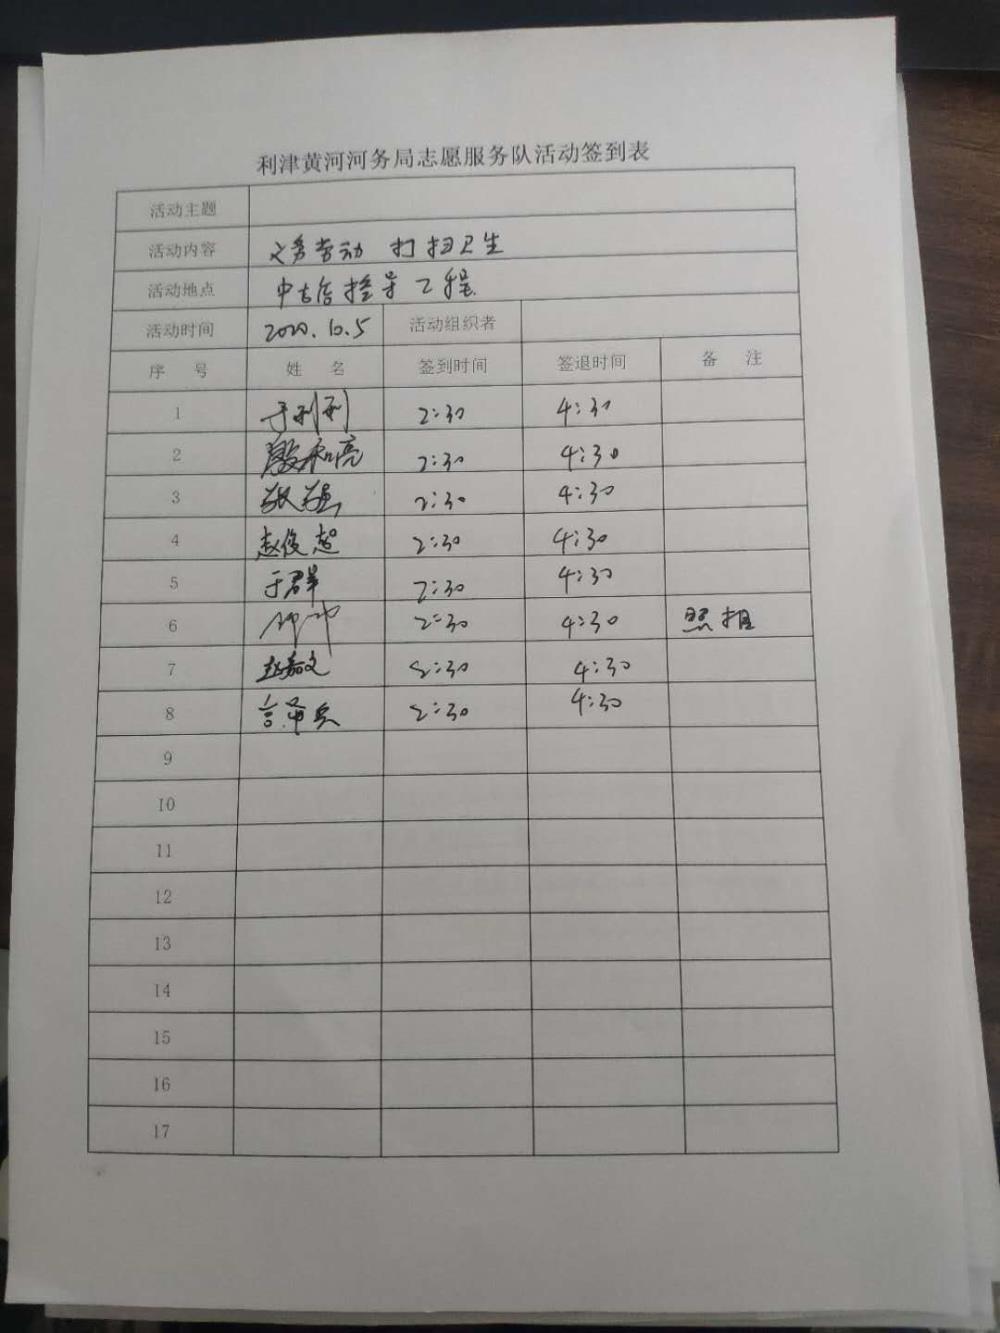 利津黄河河务局志愿服务队活动签到表
活动主题
活动内容 义务劳动 打扫卫生
活动地点 中古店控导工程
活动时间 2020.10.5 活动组织者
序 号 姓 名 签到时间 签退时间 备 注
1 于利利 2:30 4:30
2 殷和亮 2:30 4:30
3 2:30 4:30
4 赵俊超 2:30 4:30
5 于群 2:30 4:30
6 2:30 4:30 照相
7 赵嘉文 2:30 4:30
8 2:30 4:30
9
10
11
12
13
14
15
16
17